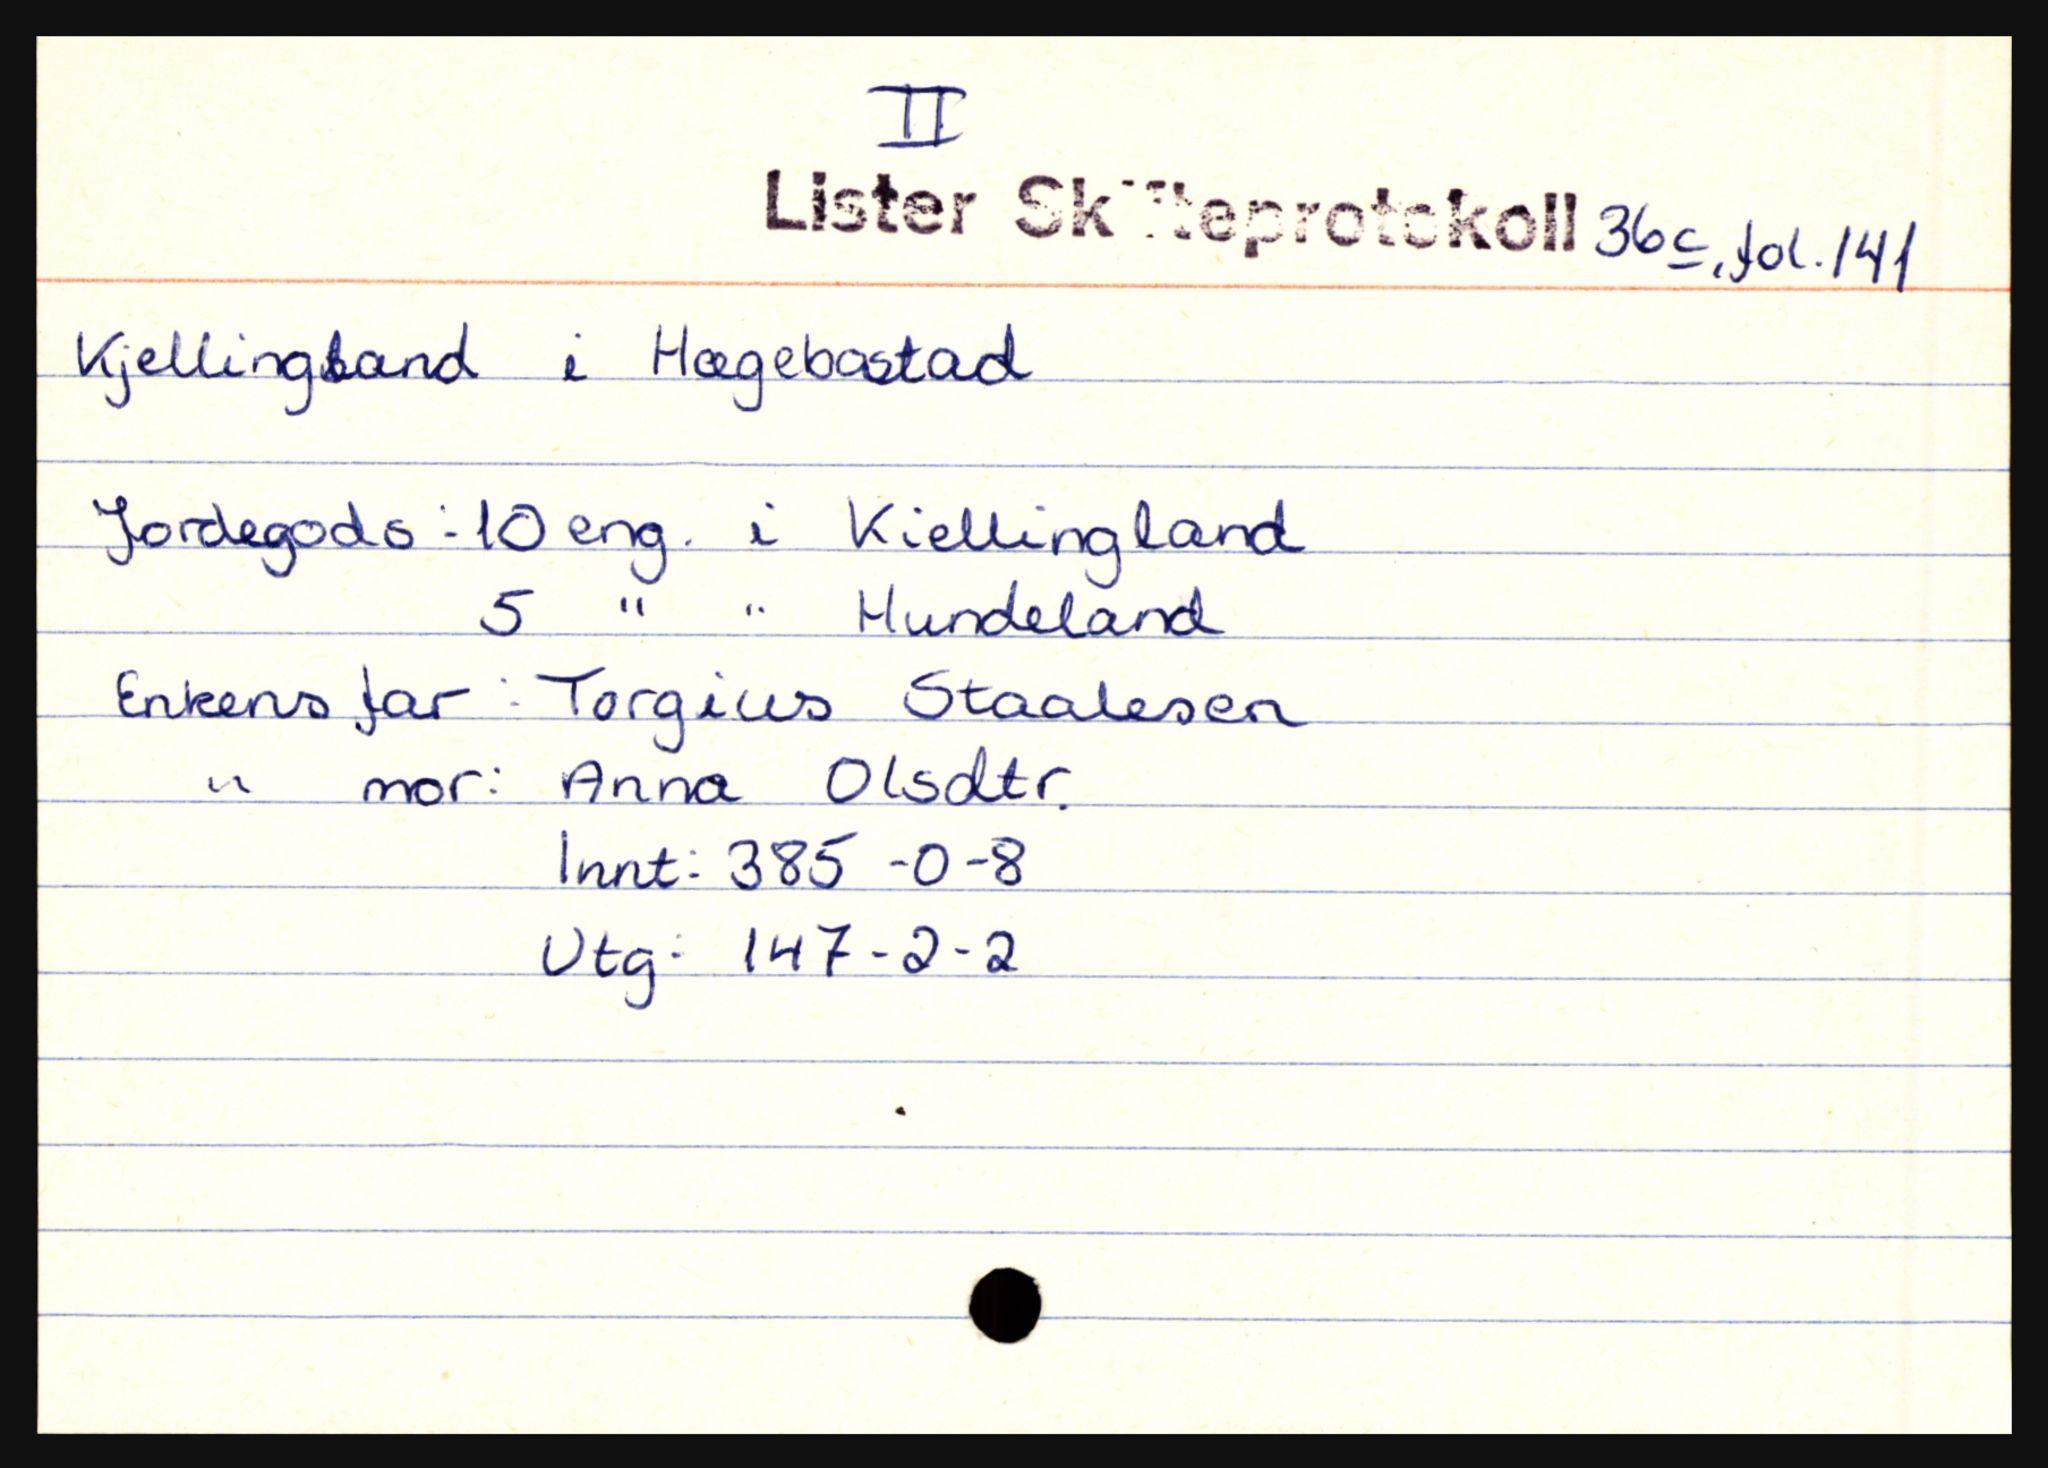 II
Lister Skifteprotokoll 36c, fol. 141
Kjellingland i Hægebostad
Jordegods: 10 eng. i Kiellingland
5 " " Hundeland
Enkens far: Torgius Staalesen
" mor: Anna Olsdtr.
Innt: 385 -0-8
Utg: 147-2-2